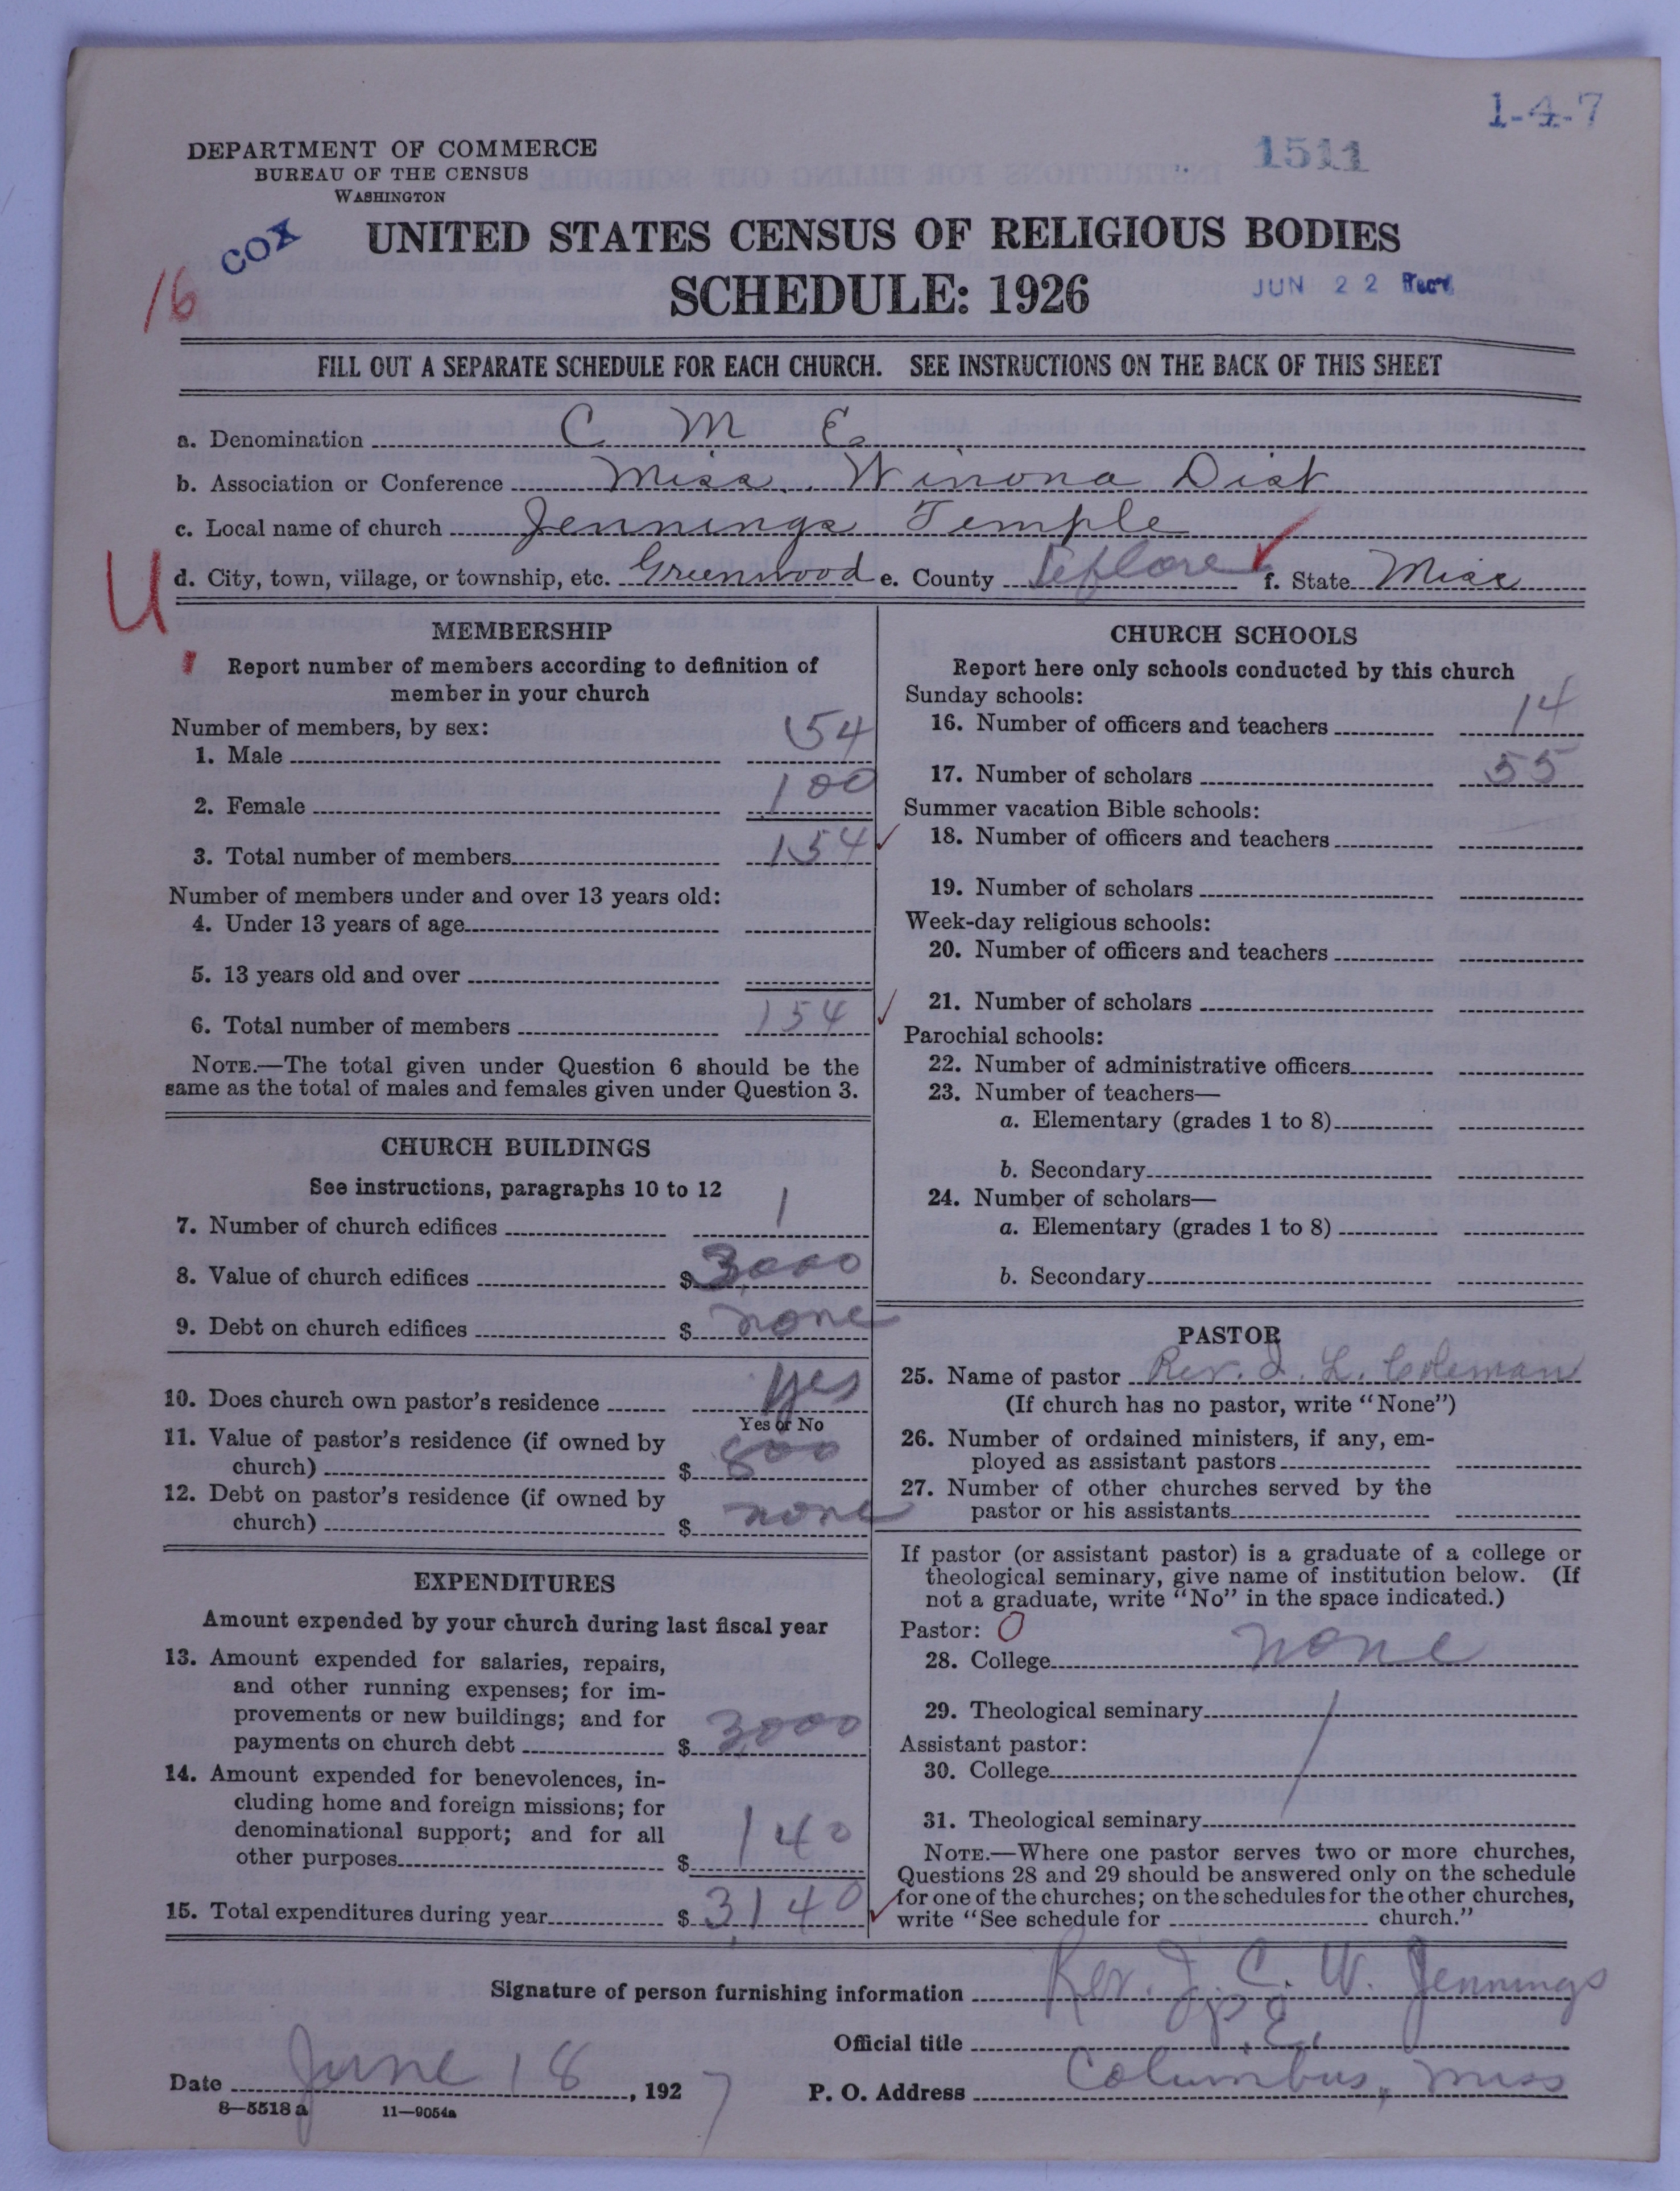 1-4-7
1511
DEPARTMENT OF COMMERCE
BUREAU OF THE CENSUS
WASHINGTON
COX
UNITED STATES CENSUS OF RELIGIOUS BODIES
16
SCHEDULE: 1926
JUN 22 Rec'd
FILL OUT A SEPARATE SCHEDULE FOR EACH CHURCH. SEE INSTRUCTIONS ON THE BACK OF THIS SHEET
a. Denomination C M E.
b. Association or Conference Miss. Winona Dist
c. Local name of church Jennings Temple
U d. City, town, village, or township, etc. Greenwood e. County Leflore f. State Miss
MEMBERSHIP
Report number of members according to definition of
member in your church
Number of members, by sex:
1. Male 54
2. Female 100
3. Total number of members 154
Number of members under and over 13 years old:
4. Under 13 years of age
5. 13 years old and over
6. Total number of members 154
NOTE.—The total given under Question 6 should be the
same as the total of males and females given under Question 3.
CHURCH BUILDINGS
See instructions, paragraphs 10 to 12
7. Number of church edifices 1
8. Value of church edifices $ 3,000
9. Debt on church edifices $ none
10. Does church own pastor's residence yes
Yes or No
11. Value of pastor's residence (if owned by
church) $ 800
12. Debt on pastor's residence (if owned by
church) $ none
EXPENDITURES
Amount expended by your church during last fiscal year
13. Amount expended for salaries, repairs,
and other running expenses; for im-
provements or new buildings; and for
payments on church debt $ 3,000
14. Amount expended for benevolences, in-
cluding home and foreign missions; for
denominational support; and for all
other purposes $ 140
15. Total expenditures during year $ 3,140
CHURCH SCHOOLS
Report here only schools conducted by this church
Sunday schools:
16. Number of officers and teachers 14
17. Number of scholars 55
Summer vacation Bible schools:
18. Number of officers and teachers
19. Number of scholars
Week-day religious schools:
20. Number of officers and teachers
21. Number of scholars
Parochial schools:
22. Number of administrative officers
23. Number of teachers—
a. Elementary (grades 1 to 8)
b. Secondary
24. Number of scholars—
a. Elementary (grades 1 to 8)
b. Secondary
PASTOR
25. Name of pastor Rev. I. L. Coleman
(If church has no pastor, write "None")
26. Number of ordained ministers, if any, em-
ployed as assistant pastors
27. Number of other churches served by the
pastor or his assistants
If pastor (or assistant pastor) is a graduate of a college or
theological seminary, give name of institution below. (If
not a graduate, write "No" in the space indicated.)
Pastor: 0
28. College none
29. Theological seminary
Assistant pastor:
30. College
31. Theological seminary
NOTE.—Where one pastor serves two or more churches,
Questions 28 and 29 should be answered only on the schedule
for one of the churches; on the schedules for the other churches,
write "See schedule for church."
Signature of person furnishing information Rev. J. C. W. Jennings
Official title P. E.
Date June 18, 1927 P. O. Address Columbus, Miss
8—5518 a 11—9054a